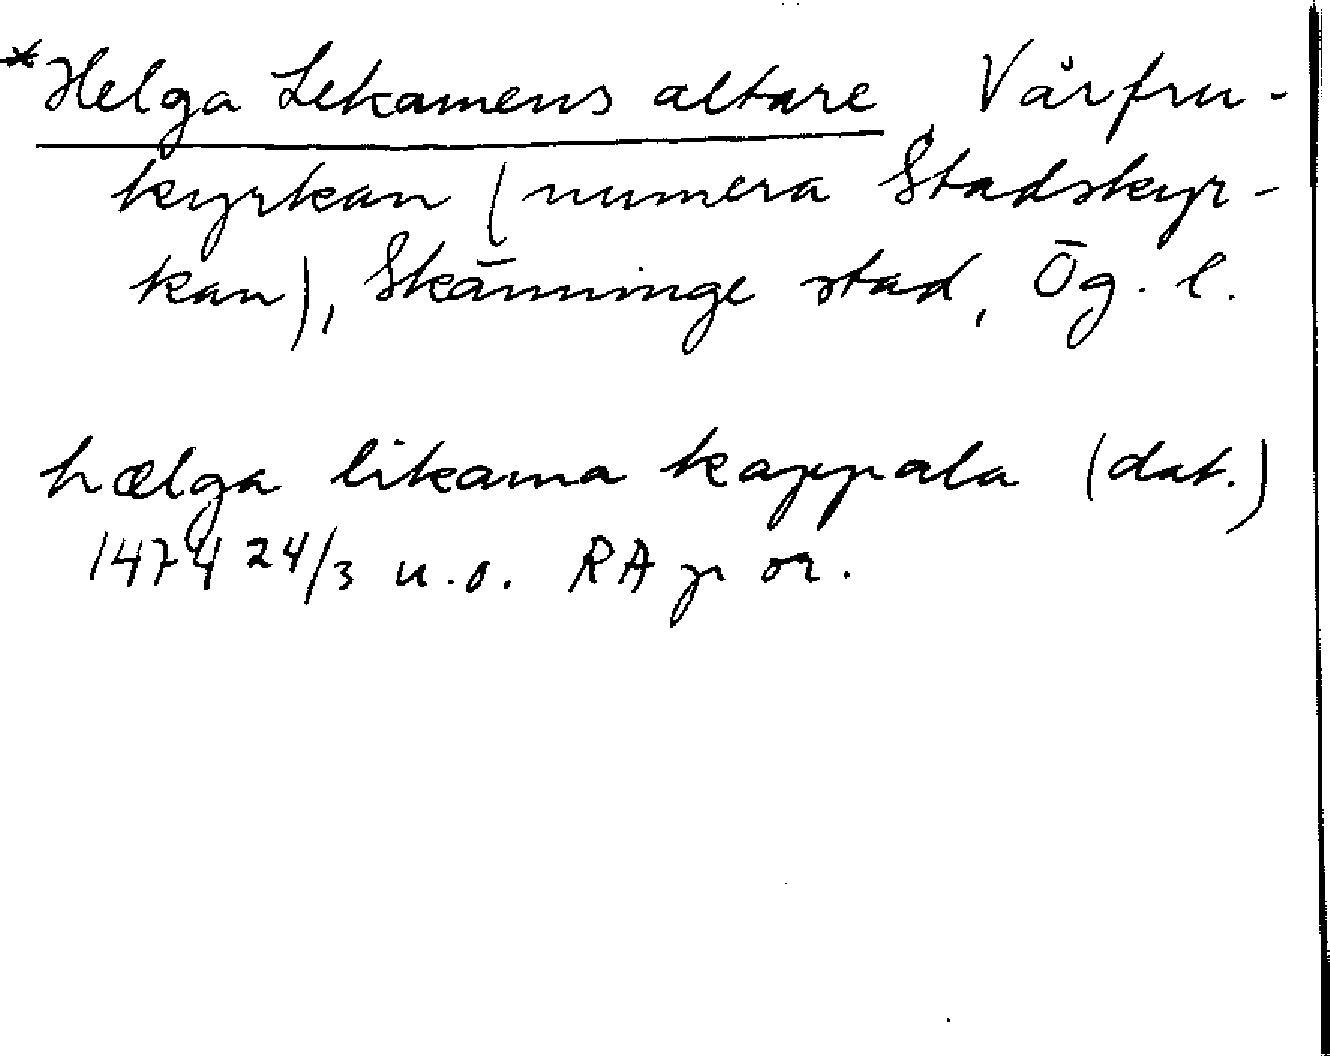 *Helga Lekamens altare Vårfru-
kyrkan (numera Stadskyr-
kan), Skänninge stad, Ög. l.
hælga likama kappala (dat.)
1474 24/3 u.o. RA p or.